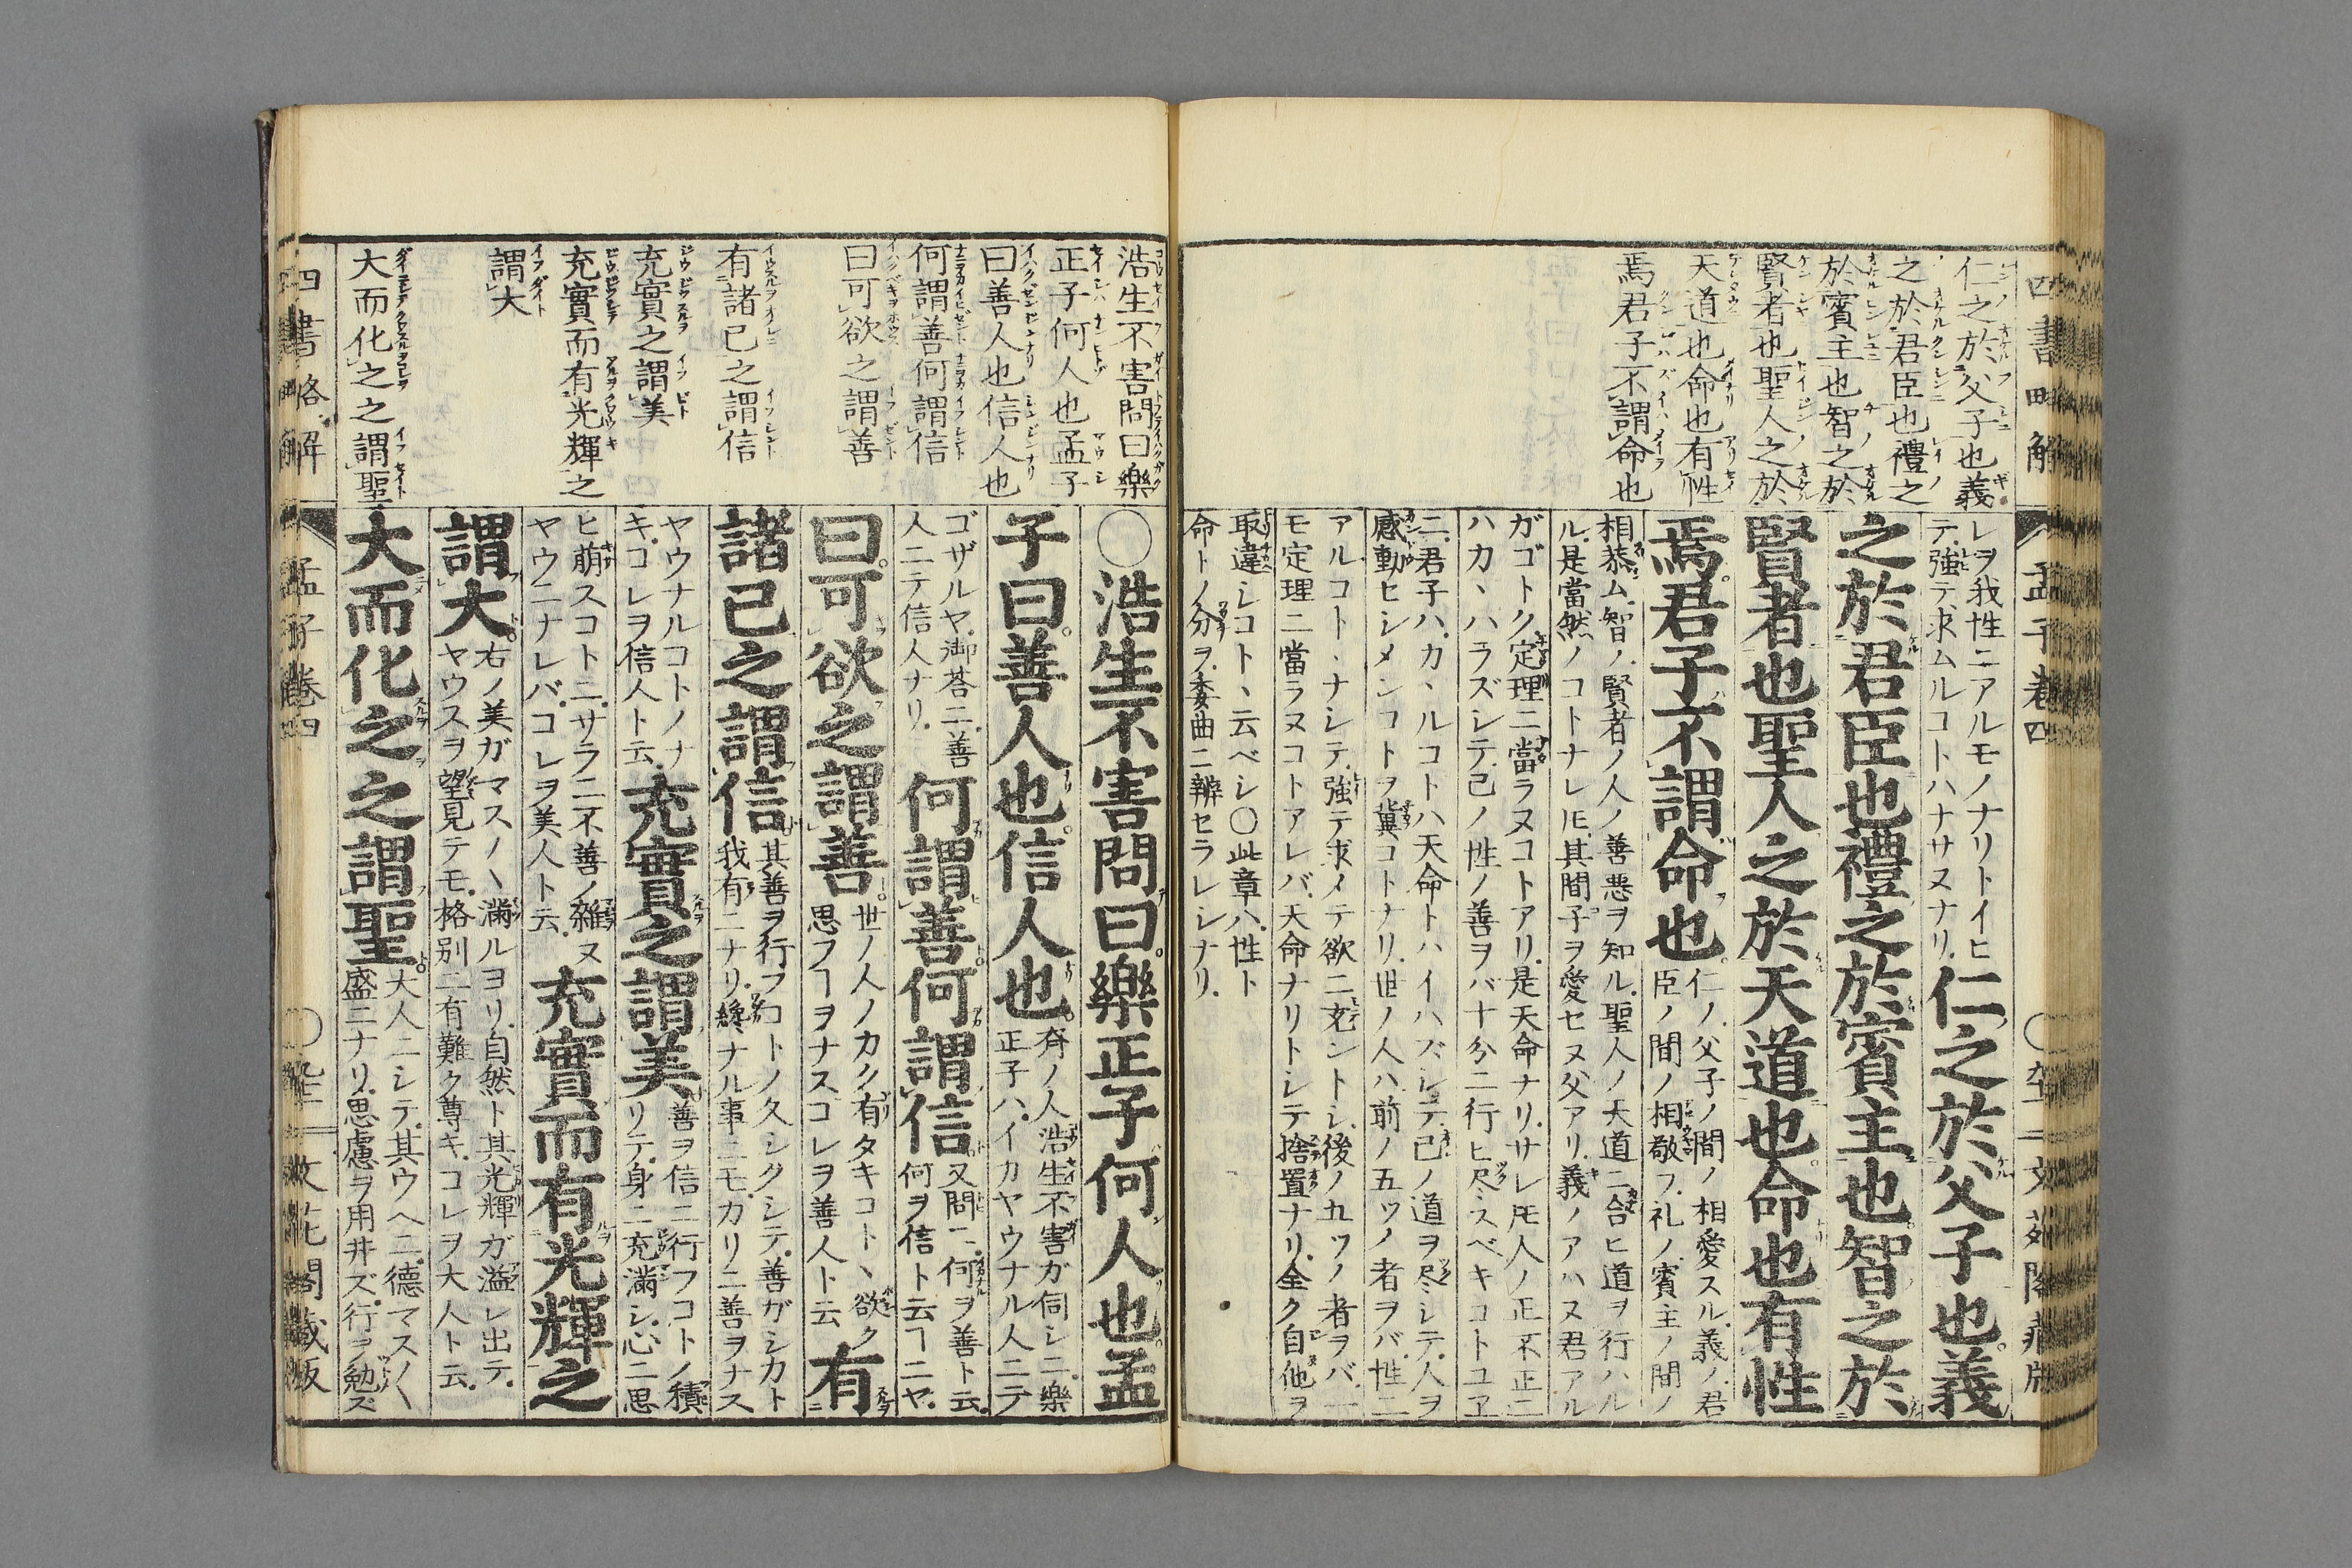 四書略解
孟子卷四
仁之於父子也義
之於君臣也禮之
於賓主也智之於
賢者也聖人之於
天道也命也有性
焉君子不謂命也
レヲ我性ニアルモノナリトイヒ
テ強テ求ムルコトハナサヌナリ
仁之於父子也義
之於君臣也禮之於賓主也智之於
賢者也聖人之於天道也命也有性
焉君子不謂命也
仁ノ父子ノ間ノ相愛スル義ノ君
臣ノ間ノ相敬フ礼ノ賓主ノ間ノ
相恭ム智ノ賢者ノ人ノ善悪ヲ知ル聖人ノ天道ニ合ヒ道ヲ行ハル
ル是當然ノコトナレ𪜈其間子ヲ愛セヌ父アリ義ノアハヌ君アル
ガゴトク定理ニ當ラヌコトアリ是天命ナリサレ𪜈人ノ正不正ニ
ハカヽハラズシテ己ノ性ノ善ヲバ十分ニ行ヒ尽スベキコトユヱ
ニ君子ハカヽルコトハ天命トハイハズシテ己ノ道ヲ尽シテ人ヲ
感動ヒシメンコトヲ冀コトナリ世ノ人ハ前ノ五ツノ者ヲバ性ニ
アルコトヽナシテ強テ求メテ欲ニ充ントシ後ノ五ツノ者ヲバ一
モ定理ニ當ラヌコトアレバ天命ナリトシテ捨置ナリ全ク自他ヲ
取違シコトヽ云ベシ〇此章ハ性ト
命トノ分ヲ委曲ニ辨セラレシナリ
浩生不害問曰樂
正子何人也孟子
曰善人也信人也
何謂善何謂信
曰可欲之謂善
有諸己之謂信
充實之謂美
充實而有光輝之
謂大
大而化之之謂聖
〇浩生不害問曰樂正子何人也孟
子曰善人也信人也
斉ノ人浩生不害ガ伺シニ樂
正子ハイカヤウナル人ニテ
ゴザルヤ御荅ニ善
人ニテ信人ナリ
何謂善何謂信
又問ニ何ヲ善ト云
何ヲ信ト云ヿニヤ
曰可欲之謂善
世ノ人ノカク有タキコトヽ欲ク
思フヿヲナスコレヲ善人ト云
有
諸己之謂信
其善ヲ行フコトノ久シクシテ善ガシカト
我有ニナリ纔ナル事ニモカリニ善ヲナス
ヤウナルコトノナ
キコレヲ信人ト云
充實之謂美
善ヲ信ニ行フコトノ積
リテ身ニ充滿シ心ニ思
ヒ萠スコトニサラニ不善ノ雜ヌ
ヤウニナレバコレヲ美人ト云
充實而有光輝之
謂大
右ノ美ガマス〱滿ルヨリ自然ト其光輝ガ溢レ出テ
ヤウスヲ望見テモ格別ニ有難ク尊キコレヲ大人ト云
大而化之之謂聖
大人ニシテ其ウヘニ德マス〱
盛ニナリ思慮ヲ用井ズ行ヲ勉ズ
四書略解
孟子卷四
文花閣藏版